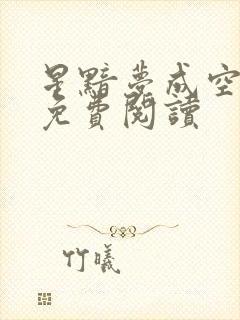 星黯夢成空
免費閱讀
竹曦